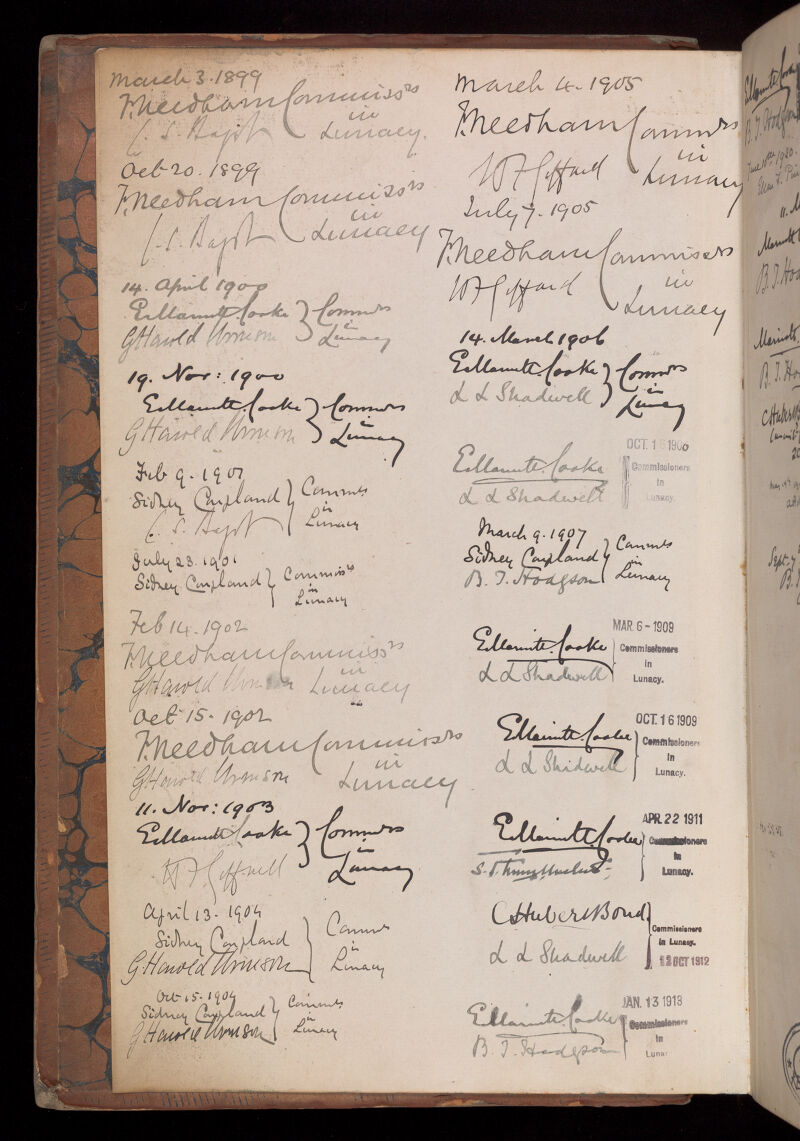 March 3. 1899
F. Needham Commissrs
C. S. Bagot in Lunacy.
Oct 20. 1899
F. Needham Commissrs
C. S. Bagot in Lunacy
14. April 1900
E. Marriott Cooke Commrs
G Harold Urmson in Lunacy
19. Nov: 1900
E. Marriott Cooke Commrs
G Harold Urmson in Lunacy
Feb 9. 1901
Sidney Coupland Commrs
C. S. Bagot in Lunacy
July 23. 1901
Sidney Coupland Commissrs
in Lunacy
Feb 14. 1902
F. Needham Commissrs
G Harold Urmson in Lunacy
Oct 15. 1902
F. Needham Commissrs
G Harold Urmson in Lunacy
11. Nov: 1903
E. Marriott Cooke Commrs
in Lunacy
April 13. 1904
Sidney Coupland Commrs
G Harold Urmson in Lunacy
Oct. 15. 1904
Sidney Coupland Commrs
G Harold Urmson in Lunacy
March 4. 1905
F. Needham Commrs
in Lunacy
July 7. 1905
F. Needham Commissrs
in Lunacy
14. March 1906
E. Marriott Cooke Commrs
L L Shadwell in Lunacy
OCT. 1906
E. Marriott Cooke Commissioners
L L Shadwell in Lunacy.
March 9. 1907
Sidney Coupland Commrs
B. T. Hodgson in Lunacy
MAR 6-1909
E. Marriott Cooke Commissioners
L L Shadwell in Lunacy.
OCT. 16 1909
E. Marriott Cooke Commissioners
L L Shadwell in Lunacy.
APR. 22 1911
E. Marriott Cooke Commissioners
in Lunacy.
C Hubert Bond Commissioners
L L Shadwell in Lunacy.
12 OCT 1912
JAN. 13 1913
E. Marriott Cooke Commissioners
B. T. Hodgson in Lunacy